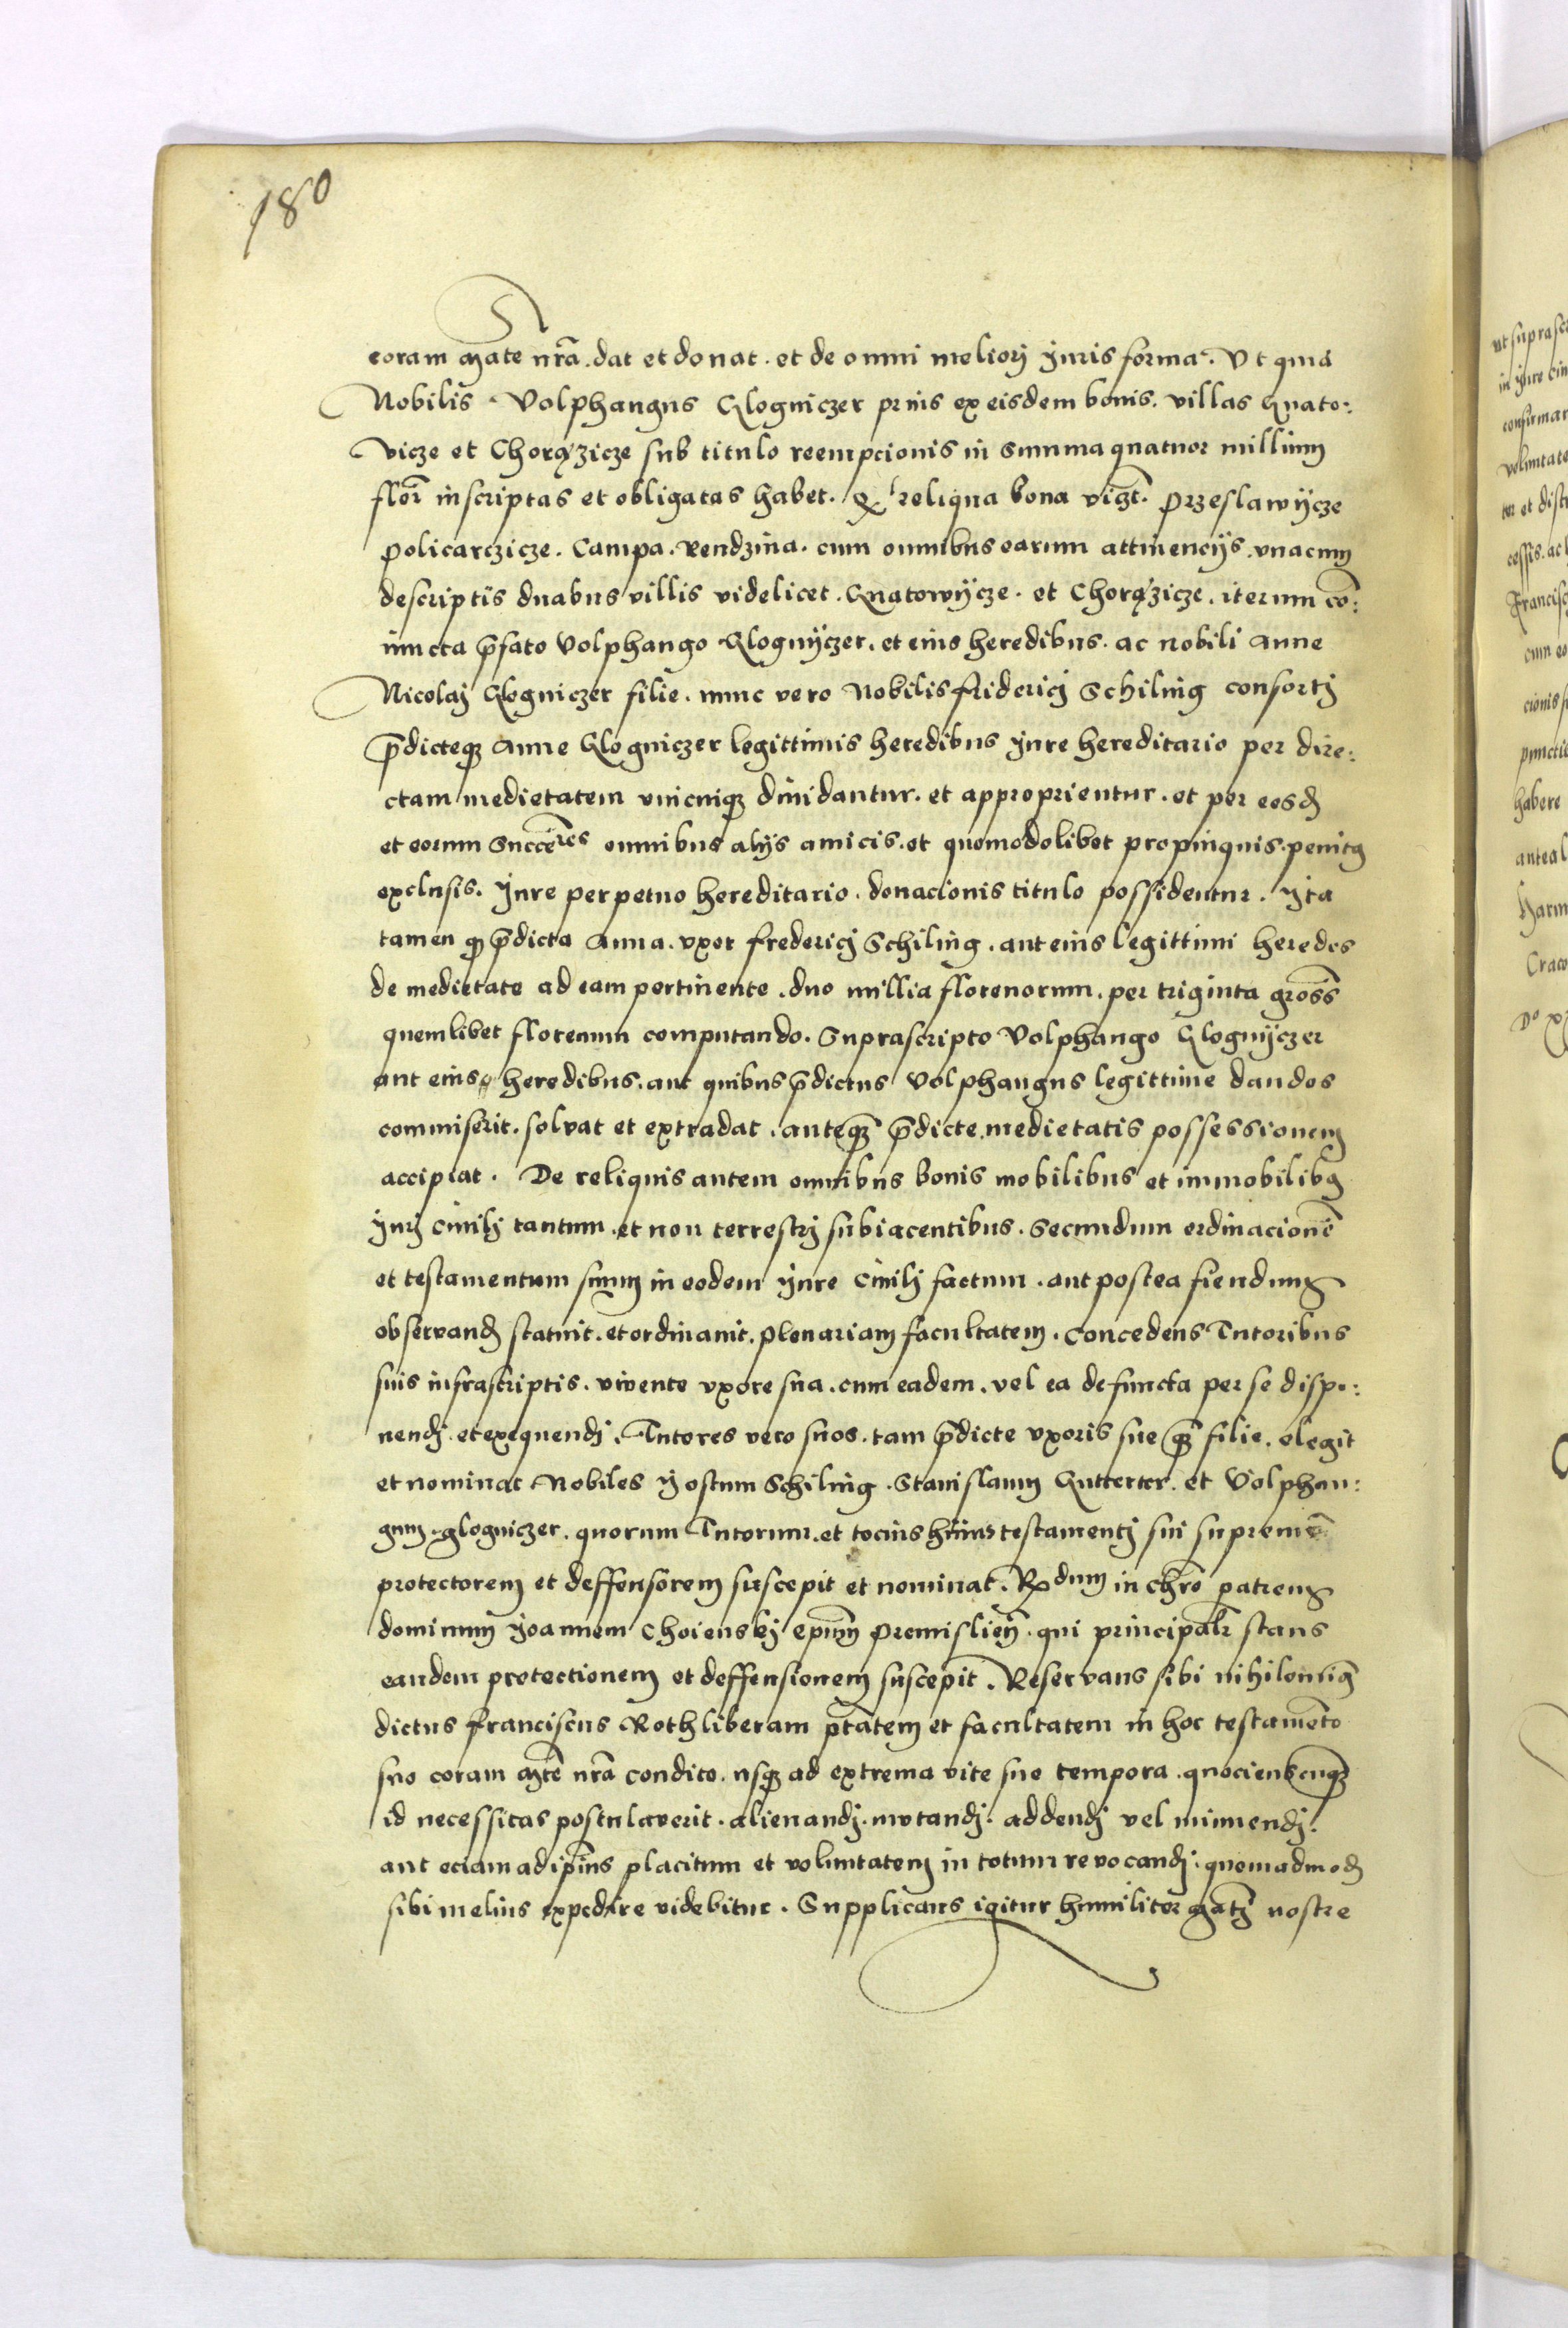 180
coram Mate nrã. dat et donat. et de omni meliori Juris forma. Ut quia
Nobilis Volphangus Glogniczer prius ex eisdem bonis. villas Gnato:
vicze et Chorązicze sub titulo reempcionis in Summa quatuor millium
florẽ inscriptas et obligatas habet. reliqua bona vizt. Przeslawÿcze
Policarczicze. Campa. Rendzina. cum omnibus earum attinencijs. vnacum
descriptis duabus villis videlicet. Gnatowÿcze. et Chorązicze. iterum cõ:
iuncta p̃fato Volphango Glognÿczer. et eius heredibus. ac nobili Anne
Nicolaj Glogniczer filie. nunc vero Nobilis friderici Schiling consortj
p̃dicteqz Anne Glogniczer legittimis heredibus Jure hereditario per dire:
ctam medietatem vnicuiqz diuidantur. et approprientur. et per eosd
et eorum Succẽres omnibus alijs amicis. et quomodolibet propinquis. penitq
exclusis. Jure perpetuo hereditario. donacionis titulo possidentur. Jta
tamen ꝙ p̃dicta Anna. vxor Frederici Schiling. aut eius legittimi heredes
de medietate ad eam pertinente. duo millia florenorum. per triginta gross̃
quemlibet florenum computando. Suprascripto Volphango Glognÿczer
aut eius heredibus. aut quibus p̃dictus Volphangus legittime dandos
commiserit. soluat et extradat. anteqz̃ p̃dicte medietatis possessionem
accipiat. De reliquis autem omnibus bonis mobilibus et immobilibq
Jurj Ciuilj tantum. et non terrestrj subiacentibus. Secundum ordinacionẽ
et testamentum suum in eodem Jure Ciuilj factum. aut postea fiendum
obseruand statuit. et ordinauit. plenariam facultatem. Concedens Tutoribus
suis infrascriptis. viuente vxore sua. cum eadem. vel ea defuncta per se dispo:
nendj. et exequendj. Tutores vero suos. tam p̃dicte vxoris sue qz̃ filie. elegit
et nominat Nobiles Jostum Schiling. Stanislaum Gutterter. et Volphan:
gum. glogniczer. quorum Tutorum. et tocius huius testamentj sui supremũ
protectorem et deffensorem suscepit et nominat. Rdum in chrõ patrem
dominum Joannem Choienskj ep̃um Premislien̄. qui principalr̃ stans
eandem protectionem et deffensionem suscepit. Reseruans sibi nihilominq
dictus Franciscus Roth liberam p̃tatem et facultatem in hoc testamẽto
suo coram Mtẽ nrã condito. usqz ad extrema vite sue tempora. quocienscunqz
id necessitas postulauerit. alienandj. mutandj. addendj vel minuendj.
aut eciam ad ip̃ius placitum et voluntatem in totum reuocandj. quemadmod
sibi melius expedire videbitur. Supplicans igitur humiliter Matj nostre